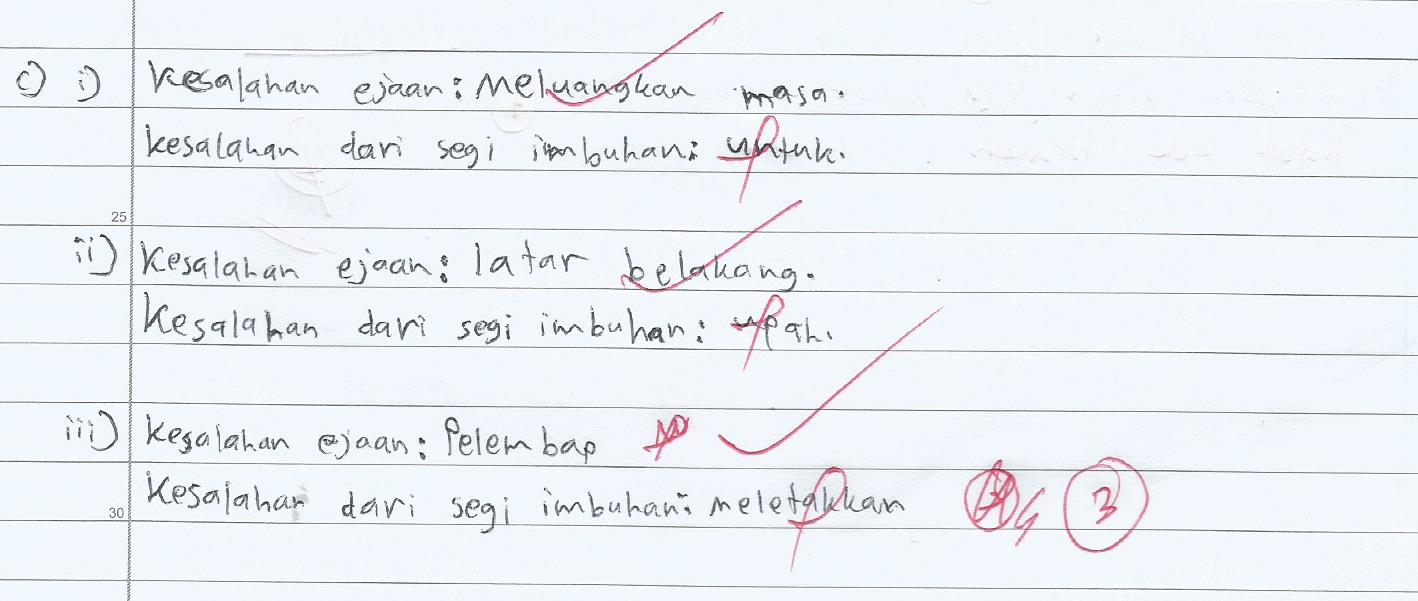 c) i) Kesalahan ejaan: Meluangkan masa.
kesalahan dari segi imbuhan: untuk.
25
ii) Kesalahan ejaan: latar belakang.
Kesalahan dari segi imbuhan: upah.
iii) Kesalahan ejaan: Pelembap
30 Kesalahan dari segi imbuhan: meletakkan 3